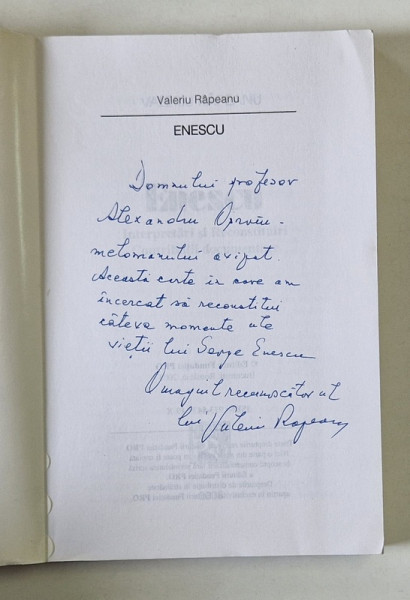 Valeriu Râpeanu
ENESCU
Domnului profesor
Alexandru
melomanului avizat.
Această carte în care am
încercat să reconstitui
câteva momente ale
vieții lui George Enescu
Omagiul recunoscător al
lui Valeriu Râpeanu